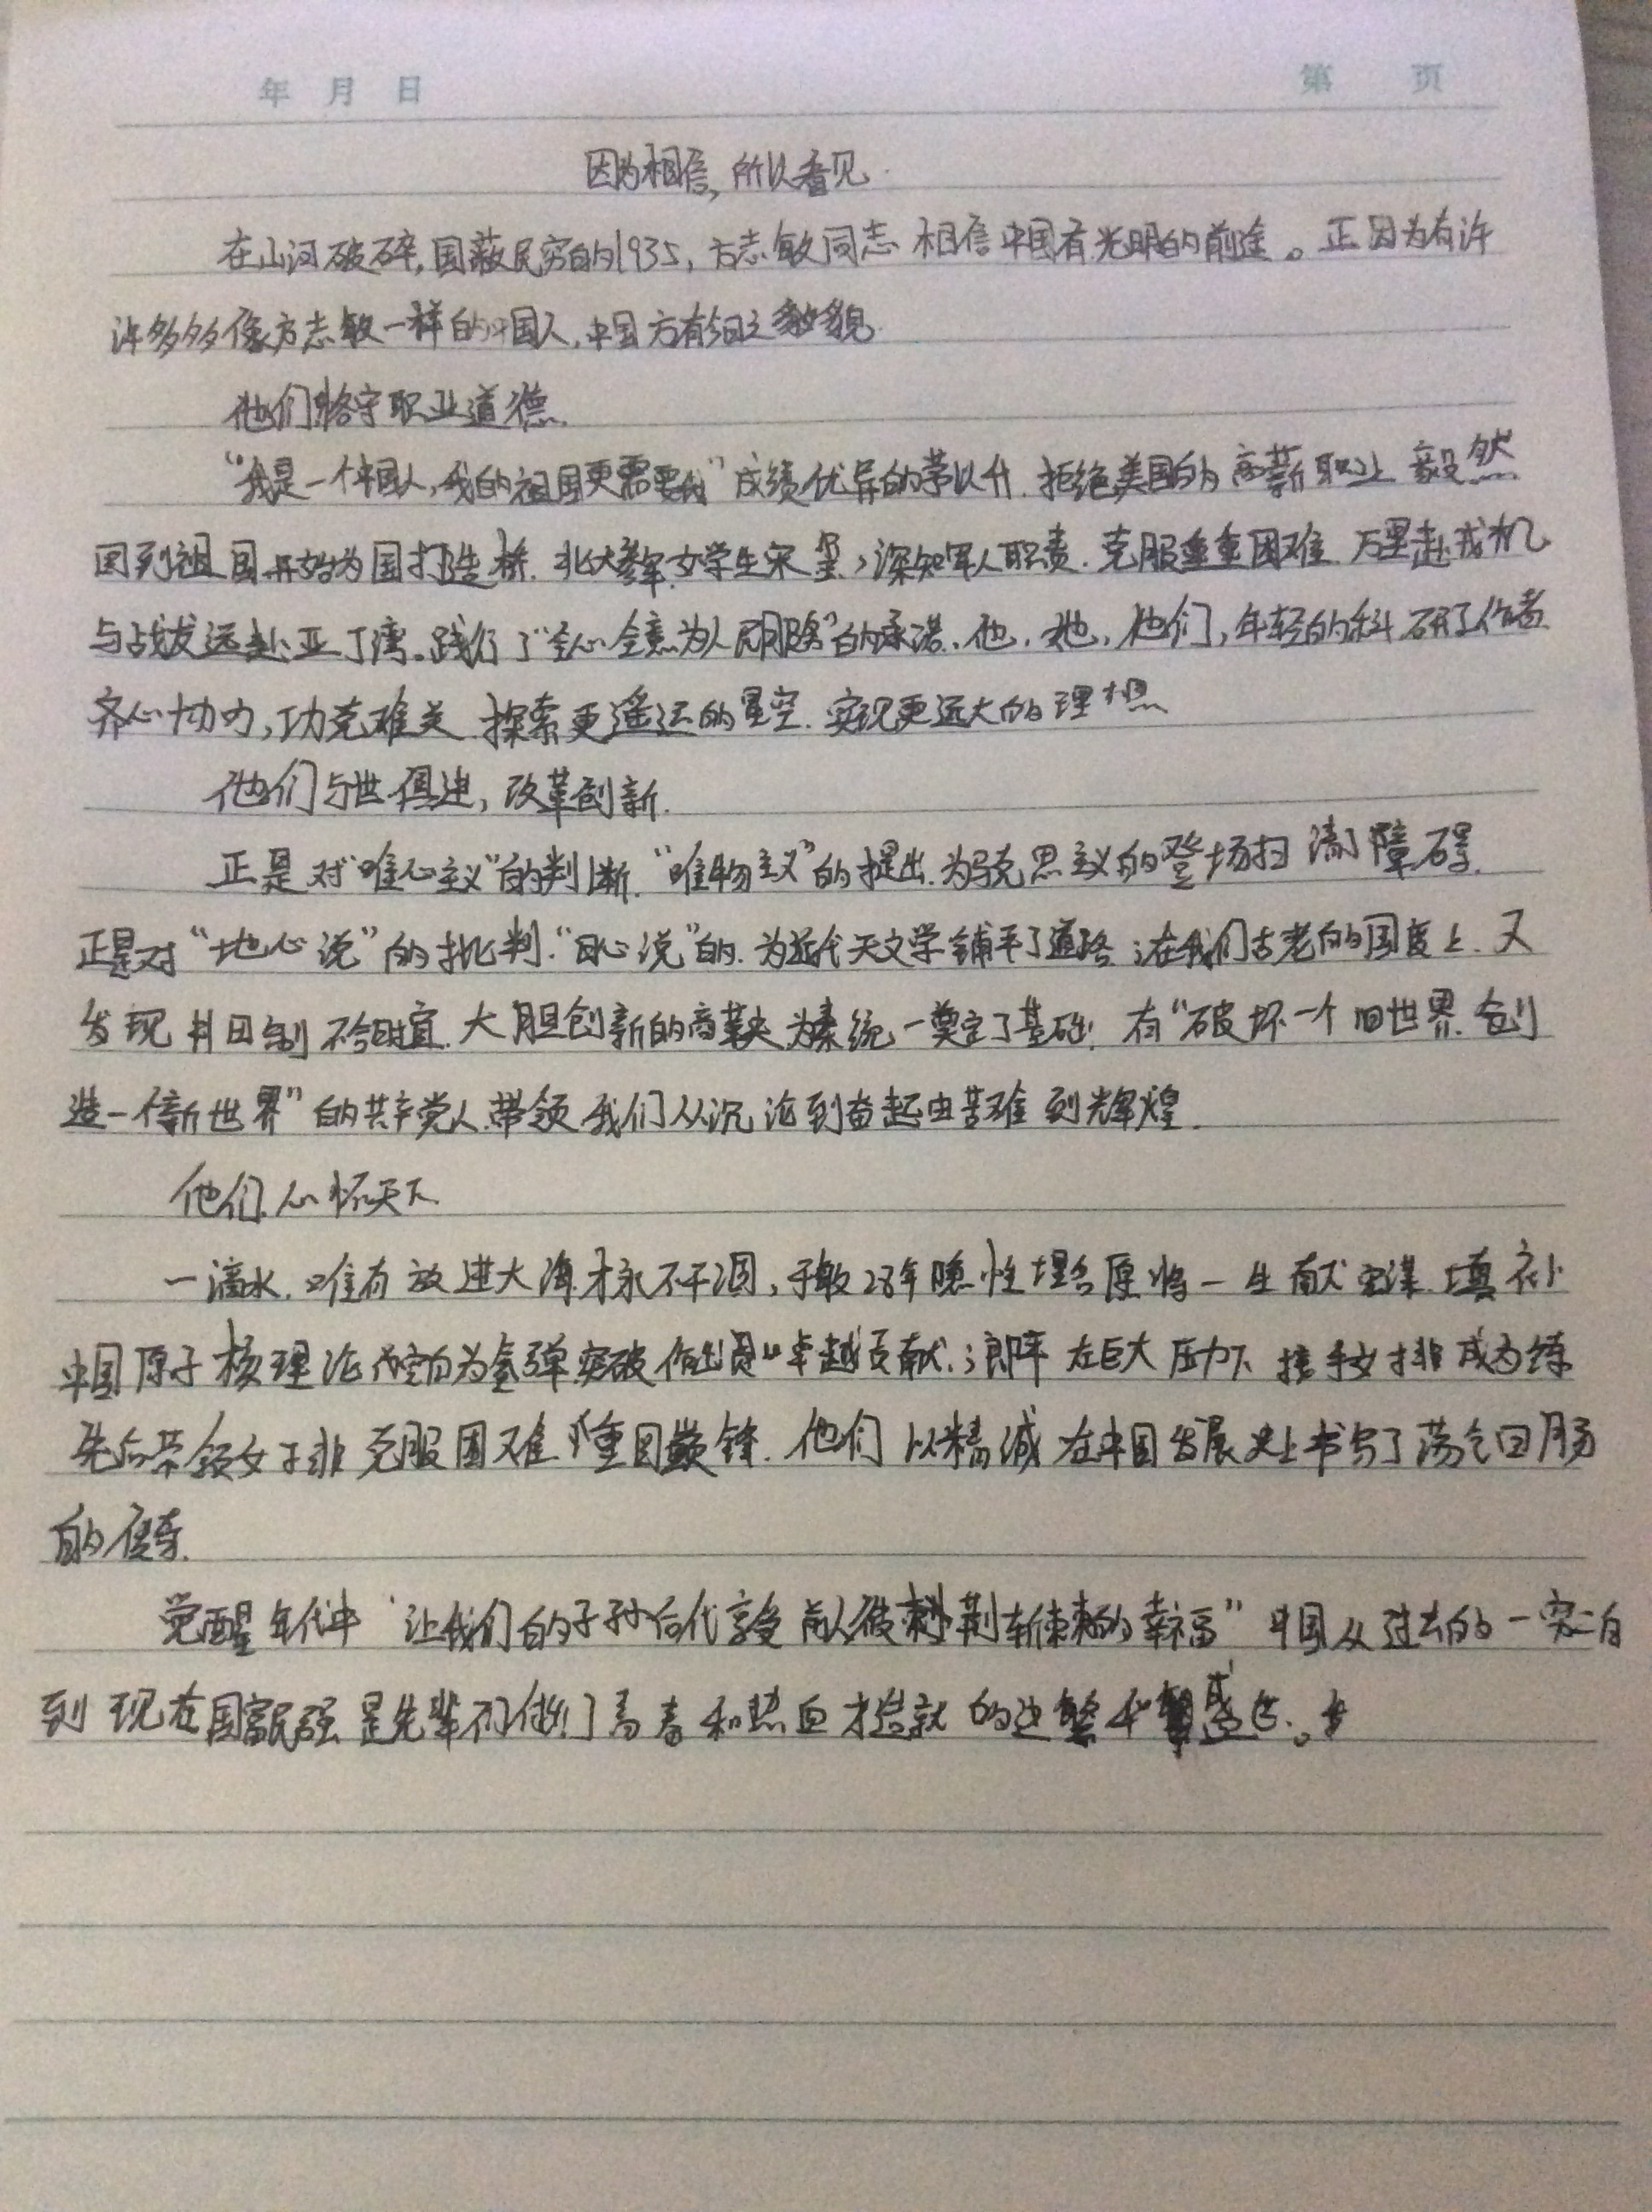 年 月 日 第 页
因为相信,所以看见.
在山河破碎,国敝民穷的1935,方志敏同志相信中国有光明的前途。正因为有许
许多多像方志敏一样的中国人,中国方有今日之貌.
他们恪守职业道德.
“我是一个中国人,我的祖国更需要我”成绩优异的茅以升.拒绝美国的高薪职业毅然
回到祖国开始为国打造桥.北大参军女学生宋玺,深知军人职责.克服重重困难.万里赴戎机
与战友远赴亚丁湾。践行了“全心全意为人民服务”的承诺.他,她,他们,年轻的科研工作者
齐心协力,功克难关.探索更遥远的星空.实现更远大的理想
他们与世俱进,改革创新.
正是对“唯心主义”的判断.“唯物主义”的提出.为马克思主义的登场扫清了障碍.
正是对“地心说”的批判.“日心说”的.为近代天文学铺平了道路;在我们古老的国度上.又
发现井田制不合时宜.大胆创新的商鞅为秦统一奠定了基础.有“破坏一个旧世界.创
造一个新世界”的共产党人.带领我们从沉沦到奋起由苦难到辉煌.
他们心怀天下.
一滴水.唯有放进大海才永不干涸,于敏28年隐姓埋名原将一生献.填补
中国原子核理论的空白为氢弹突破作出卓越贡献.;郎平在巨大压力下接手女排成为
先后带领女子排克服困难重回巅锋.他们以精诚在中国发展史上书写了荡气回肠
的传奇.
觉醒年代中“让我们的子孙后代享受前人披荆斩棘的幸福”中国从过去的一穷二白
到现在国富民强是先辈们青春和热血才造就的这繁华盛世.。